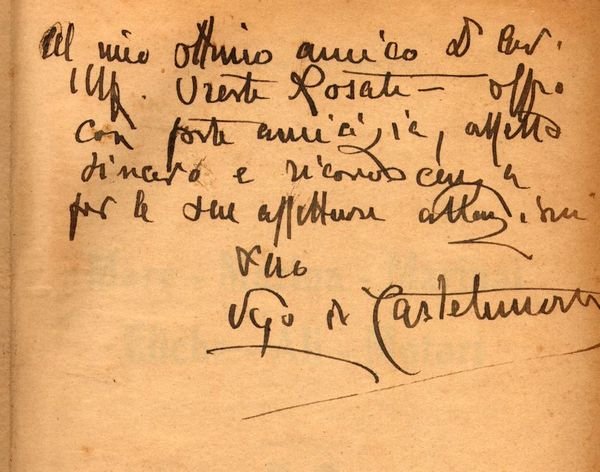 Al mio ottimo amico D Cav.
Uff. Oreste Rosati - offro
con forte amicizia, affetto
sincero e riconoscenza
per le sue affettuose attenzioni
Suo
Ugo di Castelnuovo